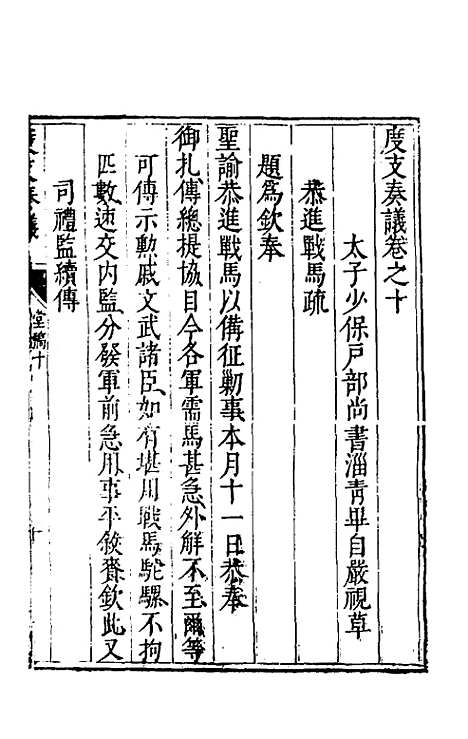 度支奏議卷之十
太子少保戶部尚書淄青畢自嚴視草
恭進戰馬疏
題爲欽奉
聖諭恭進戰馬以備征勦事本月十一日恭奉
御札傳總提協目今各軍需馬甚急外解不至爾等
可傳示勳戚文武諸臣如有堪用戰馬駝騾不拘
匹數速交内監分發軍前急用事平敘賚欽此又
司禮監續傳
度支奏議
堂稿十